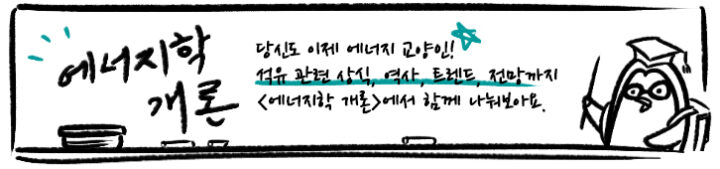 에너지학
개론
당신도 이제 에너지 교양인!
석유 관련 상식, 역사, 트렌트, 전망까지
<에너지학 개론>에서 함께 나눠보아요.